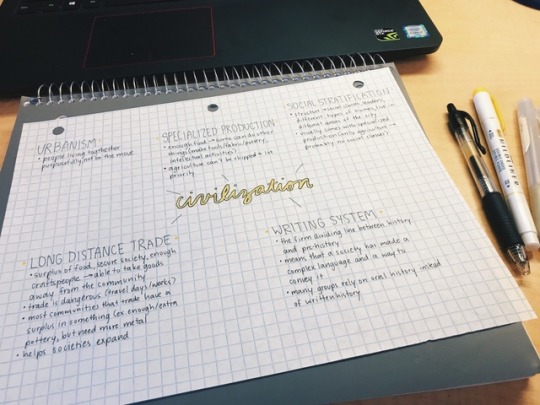 URBANISM
• people living together
purposefully, not on the move
SPECIALIZED PRODUCTION
• enough food → some can do other
things (make tools/fabric/pottery,
intellectual activities)
• agriculture can't be skipped → 1st
priority
SOCIAL STRATIFICATION
different types of homes, live in
different areas of the city
• usually comes with specialized
production (only agriculture →
probably no social classes)
civilization
LONG DISTANCE TRADE
• surplus of food, secure society, enough
craftspeople → able to take goods
away from the community
• trade is dangerous (travel days/weeks)
• most communities that trade have a
surplus in something (ex enough/extra
pottery, but need more metal
• helps societies expand
WRITING SYSTEM
• the firm dividing line between history
and pre-history
• means that a society has made a
complex language and a way to
convey it
• many groups rely on oral history instead
of written history
MILDLINER